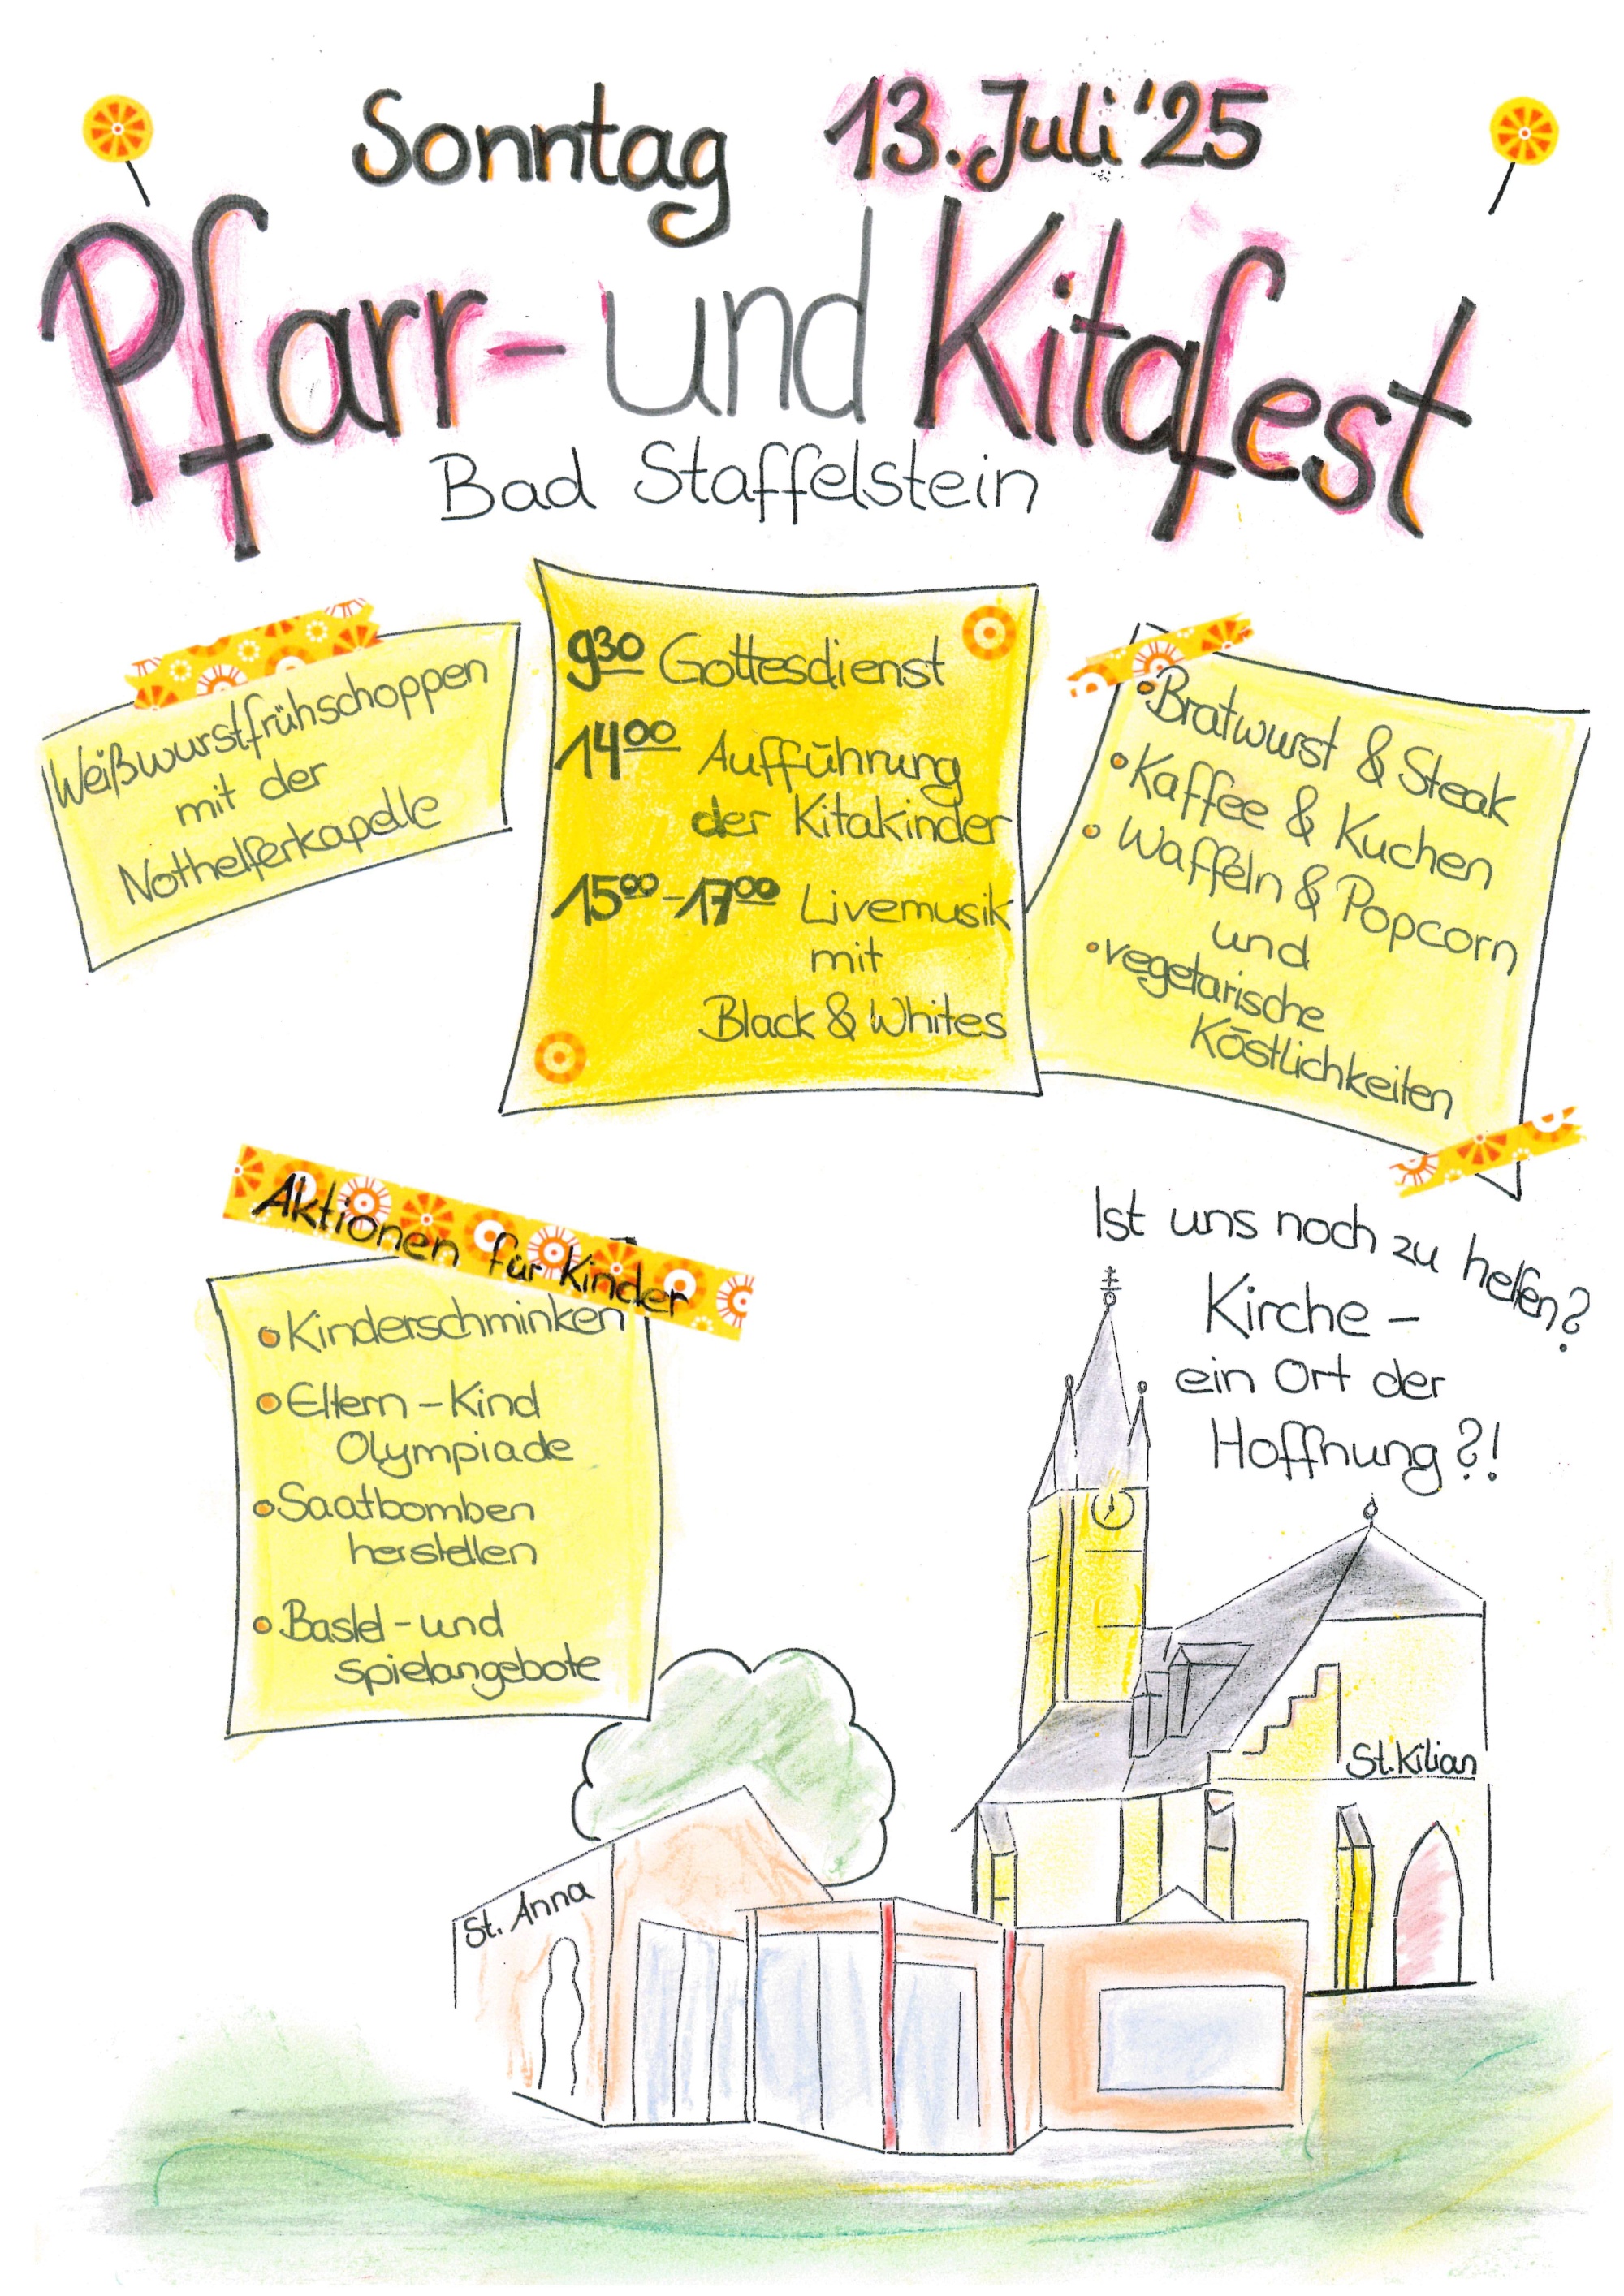 Sonntag 13. Juli '25
Pfarr- und Kitafest
Bad Staffelstein
Weißwurstfrühschoppen
mit der
Nothelferkapelle
9³⁰ Gottesdienst
14⁰⁰ Aufführung
der Kitakinder
15⁰⁰-17⁰⁰ Livemusik
mit
Black & Whites
• Bratwurst & Steak
• Kaffee & Kuchen
• Waffeln & Popcorn
und
• vegetarische
Köstlichkeiten
Aktionen für Kinder
• Kinderschminken
• Eltern-Kind
Olympiade
• Saatbomben
herstellen
• Bastel- und
Spielangebote
Ist uns noch zu helfen?
Kirche -
ein Ort der
Hoffnung?!
St. Kilian
St. Anna